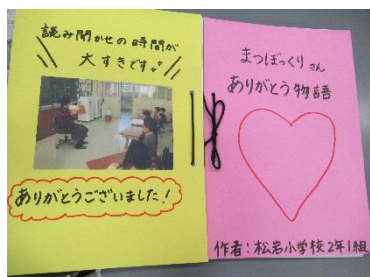 読み聞かせの時間が
大すきです♪
ありがとうございました!
まつぼっくりさん
ありがとう物語
作者:松岩小学校2年1組